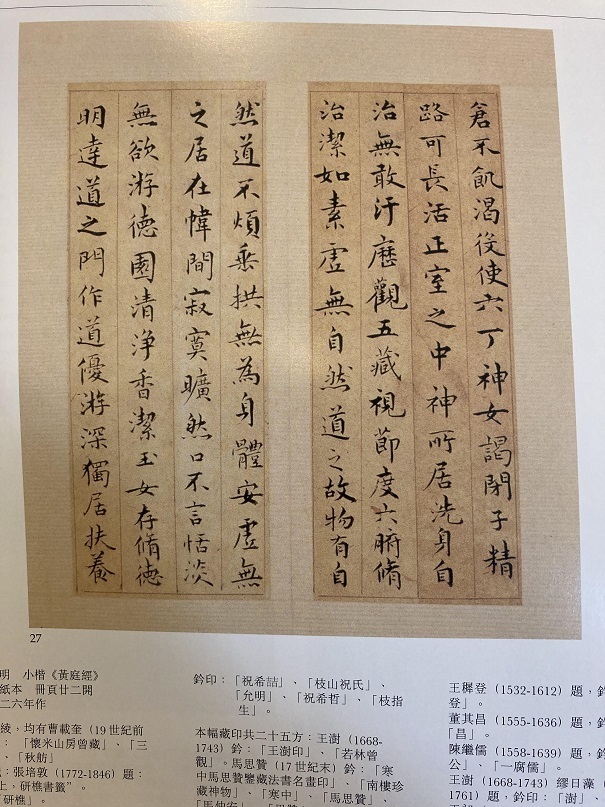 倉不飢渴役使六丁神女謁閉子精
路可長活正室之中神所居洗身自
治無敢汙歷觀五藏視節度六腑脩
治潔如素虛無自然道之故物有自
然道不煩垂拱無為身體安虛無
之居在幃間寂寞曠然口不言恬淡
無欲游德園清淨香潔玉女存脩德
明達道之門作道優游深獨居扶養
27
明　小楷《黃庭經》
紙本　冊頁廿二開
二六年作
綾，均有曹載奎 (19世紀前
：「懷米山房曾藏」、「三
、「秋舫」
：張培敦 (1772-1846) 題：
上，研樵書籤”。
「研樵」。
鈐印：「祝希喆」、「枝山祝氏」、
「允明」、「祝希哲」、「枝指
生」。
本幅藏印共二十五方：王澍 (1668-
1743) 鈐：「王澍印」、「若林曾
觀」。馬思贊 (17世紀末) 鈐：「寒
中馬思贊鑒藏法書名畫印」、「南樓珍
藏神物」、「寒中」、「馬思贊」、
王穉登 (1532-1612) 題，鈐
登」。
董其昌 (1555-1636) 題，鈐
「昌」。
陳繼儒 (1558-1639) 題，鈐
公」、「一腐儒」。
王澍 (1668-1743) 繆日藻
1761) 題，鈐印：「澍」、